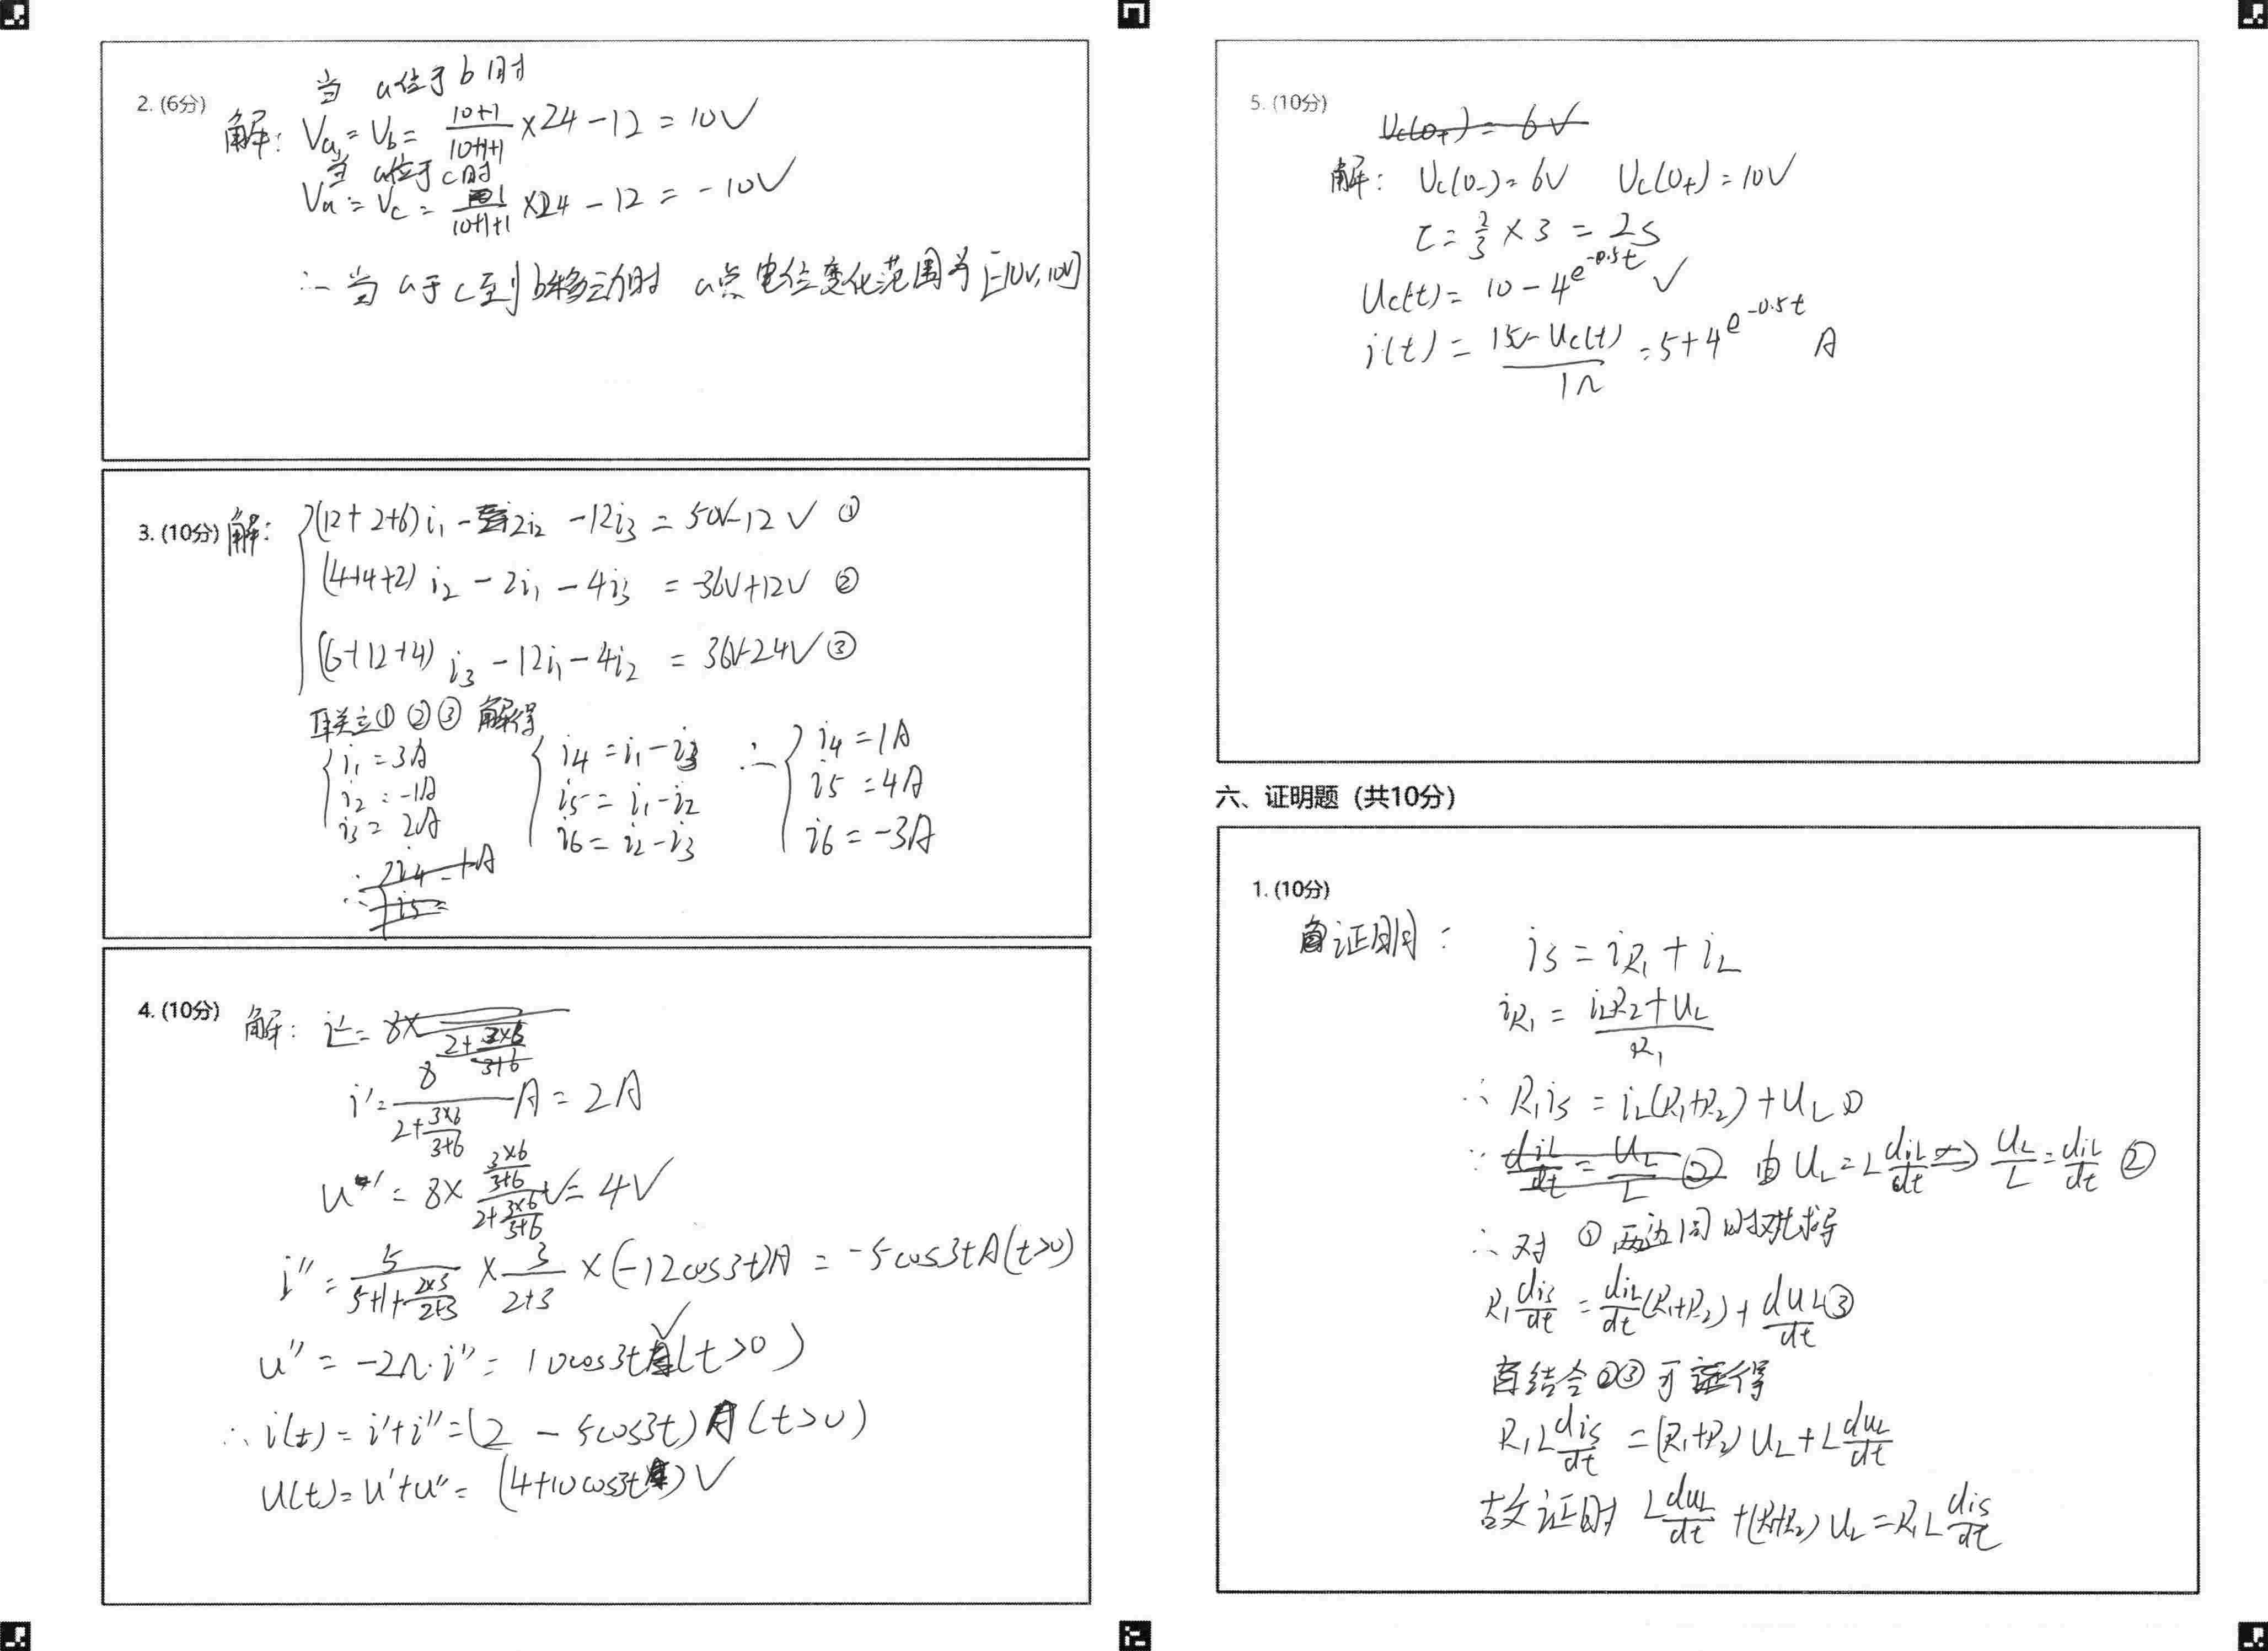 2. (6分)
当 a位于 b 时
解: Va = Vb = (10+1)/(10+1+1) ×24 -12 = 10V
当 a位于 c时
Va = Vc = 1/(10+1+1) ×24 - 12 = -10V
∴ 当 a于 c至 b移动时 a点 电位变化范围为 [-10V, 10V]
3. (10分) 解:
(12+2+6) i1 - 2i2 - 12i3 = 50V-12V ①
(4+4+2) i2 - 2i1 - 4i3 = -36V+12V ②
(6+12+4) i3 - 12i1 - 4i2 = 36V-24V ③
联立①②③ 解得
i1 = 3A
i2 = -1A
i3 = 2A
i4 = i1 - i3
i5 = i1 - i2
i6 = i2 - i3
∴ i4 = 1A
i5 = 4A
i6 = -3A
∴ i4 = 1A
i5 =
4. (10分) 解: i' = 8× / (2+(3×6)/(3+6))
i' = 8/(2+(3×6)/(3+6)) A = 2A
u' = 8× ((3×6)/(3+6))/(2+(3×6)/(3+6)) V = 4V
i'' = 5/(5+1+(2×3)/(2+3)) × 3/(2+3) × (-12cos3t)A = -5cos3tA (t>0)
u'' = -2Ω·i'' = 10cos3tV (t>0)
∴ i(t) = i'+i'' = (2 - 5cos3t) A (t>0)
u(t) = u'+u'' = (4+10cos3t) V
5. (10分)
Uc(0+) = 6V
解: Uc(0-) = 6V Uc(0+) = 10V
τ = 2/3 × 3 = 2s
Uc(t) = 10 - 4e^-0.5t V
i(t) = (15V - Uc(t))/1Ω = 5+4e^-0.5t A
六、证明题（共10分）
1. (10分)
证明:
is = iR1 + iL
iR1 = (iLR2+UL)/R1
∴ R1is = iL(R1+R2)+UL ①
∵ diL/dt = UL/L ② 由 UL = L diL/dt ⇒ UL/L = diL/dt ②
∴ 对 ① 两边同时对t求导
R1 dis/dt = diL/dt (R1+R2) + dUL/dt ③
结合②③可证得
R1L dis/dt = (R1+R2) UL + L duL/dt
故证明 L duL/dt + (R1+R2) UL = R1L dis/dt